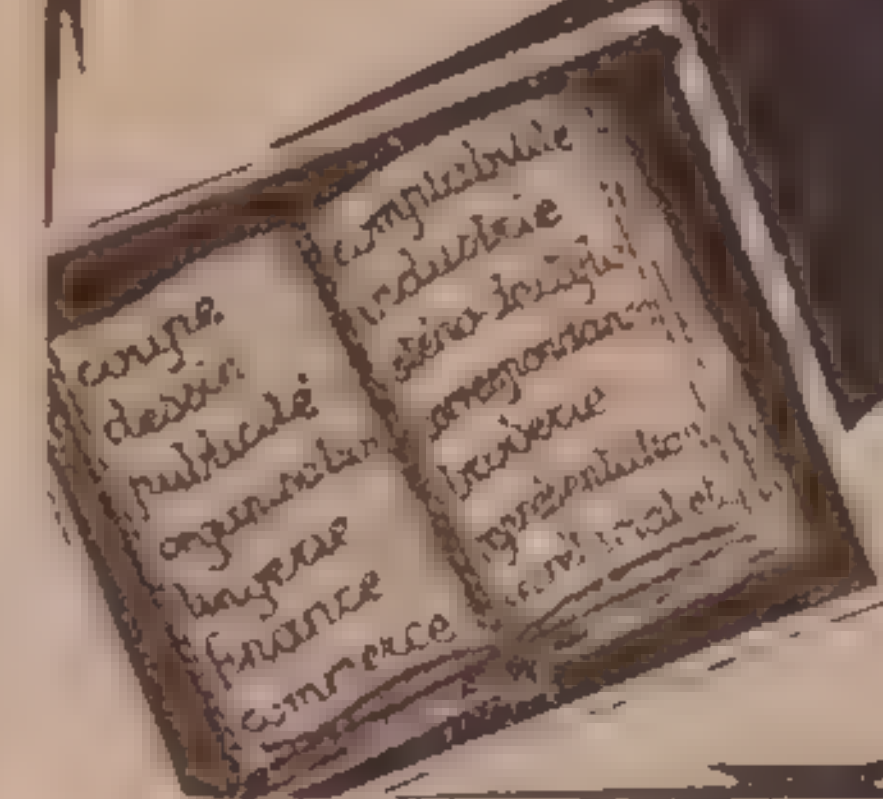 coupe
dessin
publicité
organisation
lingerie
finance
commerce
comptabilité
industrie
sténo-
correspondan
représentatio